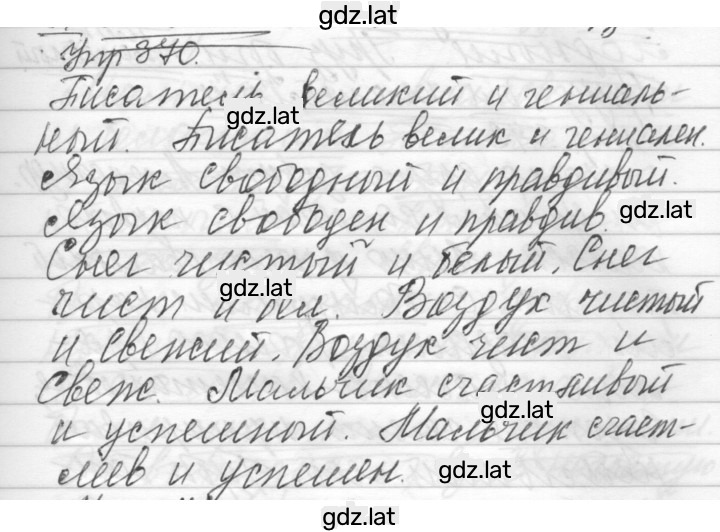 gdz.lat
Упр 370.
Писатель великий и гениаль-
gdz.lat
ный. Писатель велик и гениален.
Язык свободный и правдивый.
Язык свободен и правдив.
gdz.lat
Снег чистый и белый. Снег
gdz.lat
чист и бел. Воздух чистый
и свежий. Воздух чист и
свеж. Мальчик счастливый
gdz.lat
и успешный. Мальчик счаст-
лив и успешен.
gdz.lat
gdz.lat